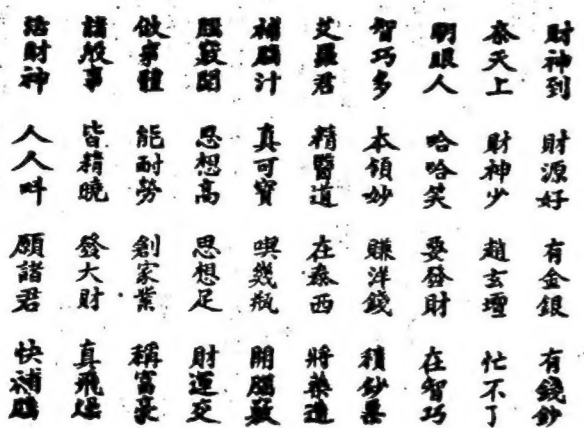 財神到 財源好 有金銀 有錢鈔
奈天上 財神少 趙玄壇 忙不了
明眼人 哈哈笑 要發財 在智巧
智巧多 本領妙 賺洋錢 積鈔票
艾羅君 精醫道 在泰西 將藥造
補腦汁 真可寶 喫幾瓶 開腦竅
腦竅開 思想高 思想足 財運交
做事體 能耐勞 創家業 稱富豪
諸般事 皆精曉 發大財 真飛
活財神 人人叫 願諸君 快補腦